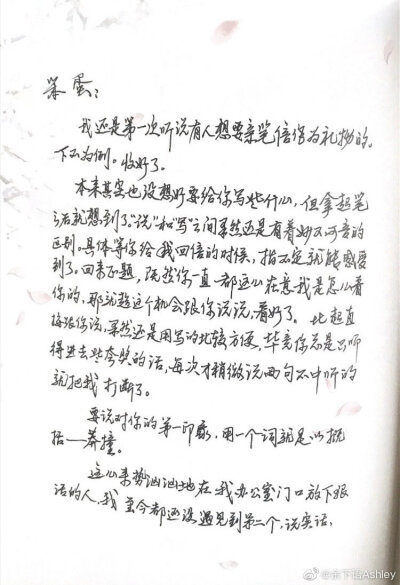 笨蛋：
我还是第一次听说有人想要亲笔信作为礼物的。
下不为例。收好了。
本来其实也没想好要给你写些什么，但拿起笔
之后就想到了。“说”和“写”之间果然还是有着妙不可言的
区别。具体等你给我回信的时候，指不定就能感受
到了。回来正题，既然你一直都这么在意我是怎么看
你的，那就趁这个机会跟你说说，看好了。比起直
接跟你说，果然还是用写的比较方便，毕竟你总是只听
得进去些夸奖的话，每次才稍微说两句不中听的
就把我打断了。
要说对你的第一印象，用一个词就足以概
括——莽撞。
这么来势汹汹地在我办公室门口放下狠
话的人，我至今都还没遇见到第二个，说实话，
@余下语Ashley